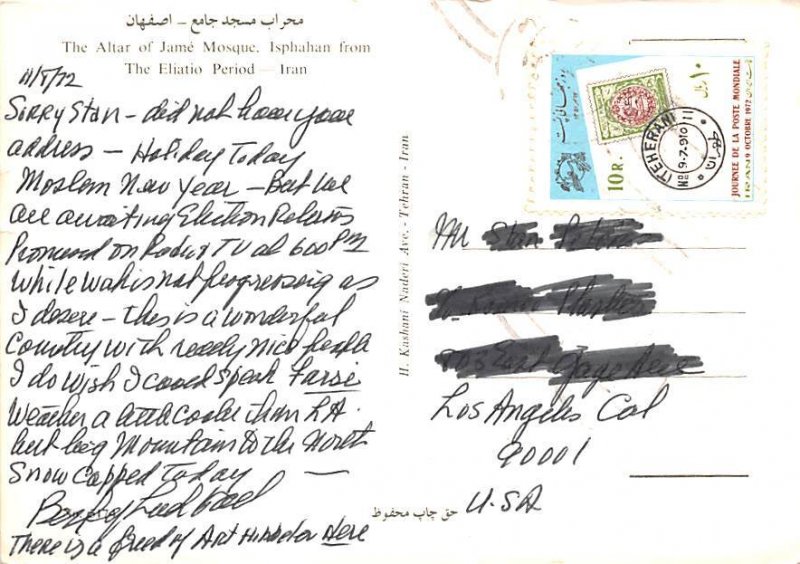 محراب مسجد جامع - اصفهان
The Altar of Jamé Mosque. Isphahan from
The Eliatio Period — Iran
11/8/72
Sorry Stan - did not have your
address - Holiday Today
Moslem New Year - But we
are awaiting Election Returns
Promised on Radio & TV at 600 PM
While work is not progressing as
I desire - this is a wonderful
Country with really nice people
I do wish I could speak Farsi
Weather a little cooler than L.A.
but big Mountain to the North
Snow capped Today
There is a of Art Here
H. Kashani Naderi Ave. - Tehran - Iran
حق چاپ محفوظ
Mr Stan
Los Angeles Cal
90001
U.S.A
10 R.
۱۰ ریال
JOURNEE DE LA POSTE MONDIALE
IRAN 9 OCTOBRE 1972
TEHERAN